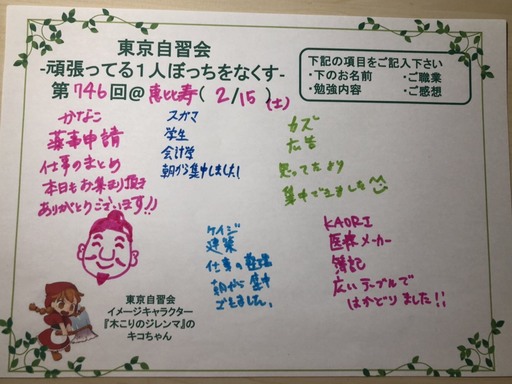 東京自習会
-頑張ってる１人ぼっちをなくす-
第746回@恵比寿(2/15)(土)
下記の項目をご記入下さい
・下のお名前 ・ご職業
・勉強内容 ・ご感想
かなこ
薬事申請
仕事のまとめ
本日もお集まり頂き
ありがとうございます!!
スガマ
学生
会計学
朝から集中しました!
カズ
広告
思ってたより
集中できました
ケイジ
建築
仕事の整理
朝から集中
できました。
KAORI
医療メーカー
簿記
広いテーブルで
はかどりました!!
東京自習会
イメージキャラクター
『木こりのジレンマ』の
キコちゃん